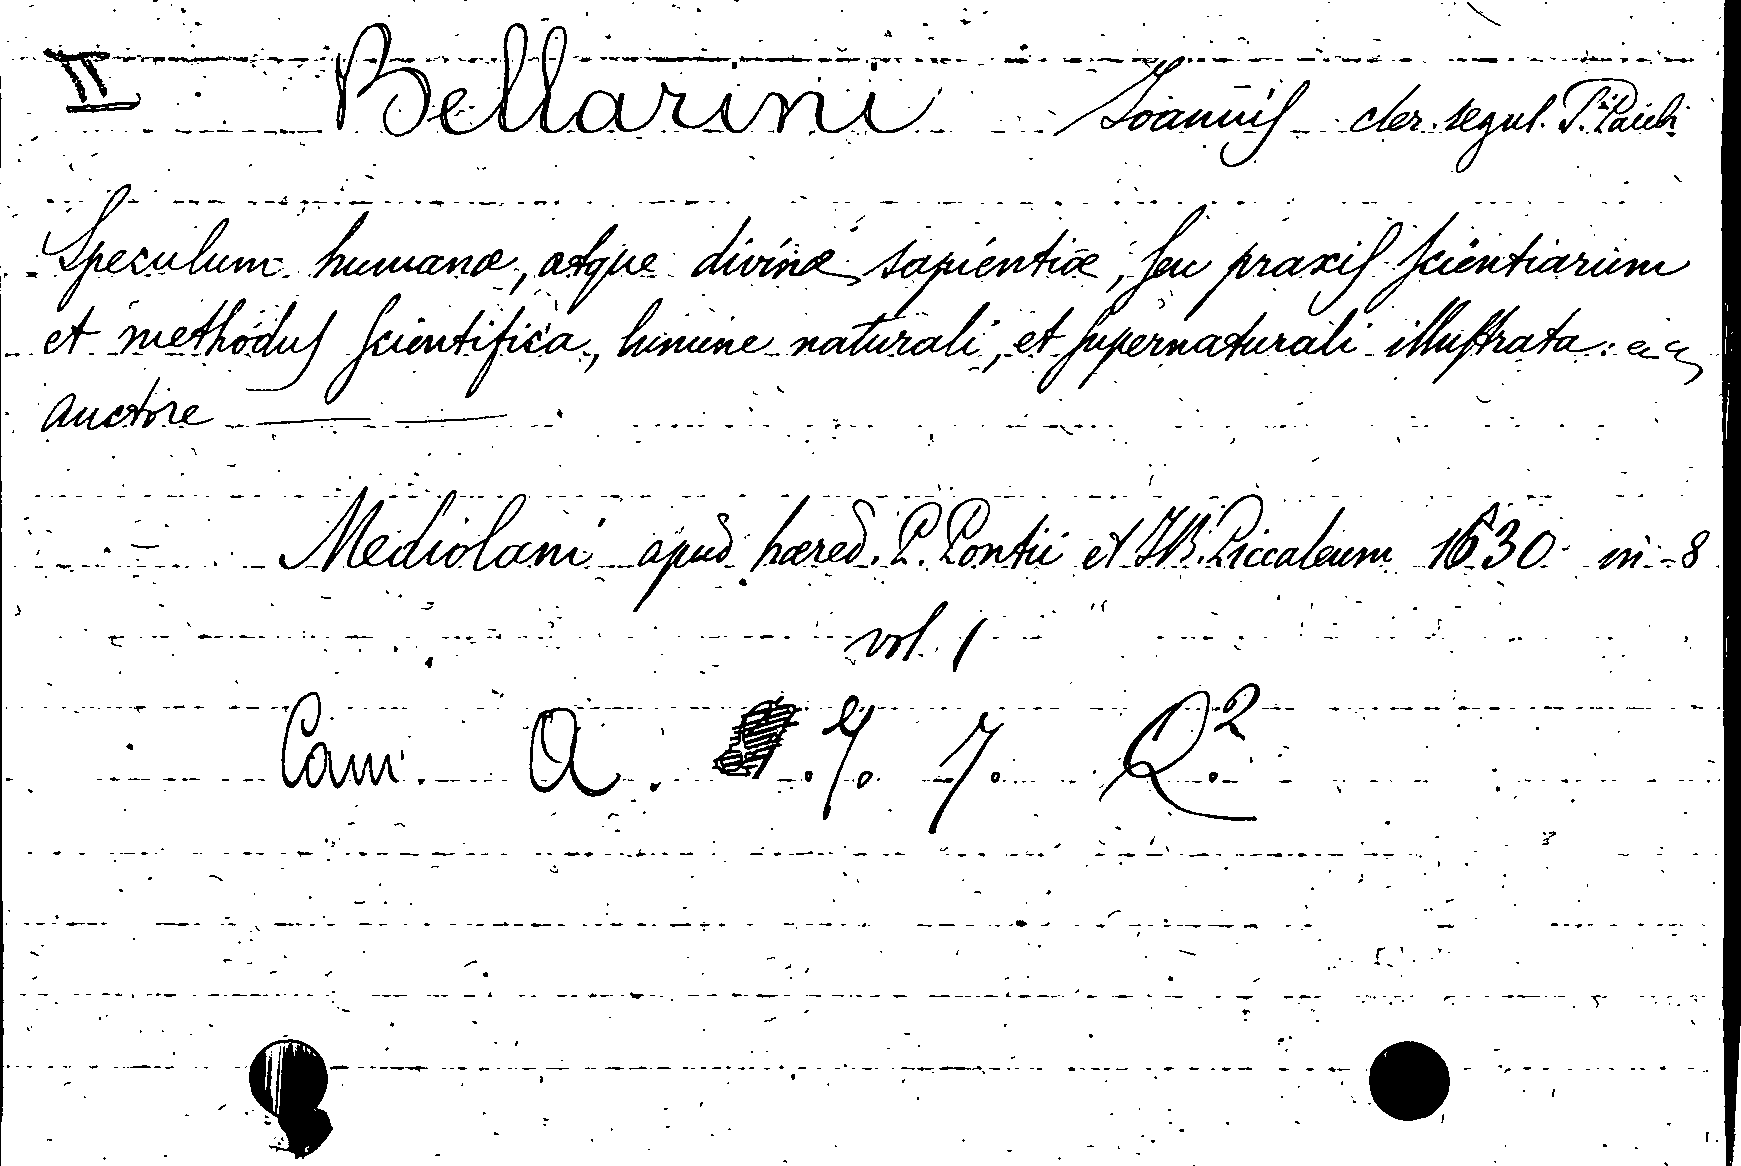 II Bellarini Joannis cler. regul. S.ti Pauli
Speculum humanæ, atque divinæ sapientiæ, seu praxis scientiarum
et methodus scientifica, lumine naturali, et supernaturali illustrata:
auctore ——
Mediolani apud hæred. P. Pontii et J.B. Piccaleum 1630 in-8
vol. 1
Cam. A. 7. Q.2